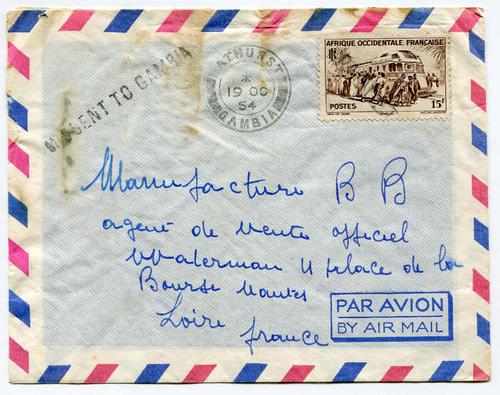 MISSENT TO GAMBIA
BATHURST
19 OC
54
GAMBIA
AFRIQUE OCCIDENTALE FRANÇAISE
RF
POSTES 15F
Manufacture B B
agent de vente officiel
Waterman 11 place de la
Bourse Nantes
Loire france
PAR AVION
BY AIR MAIL